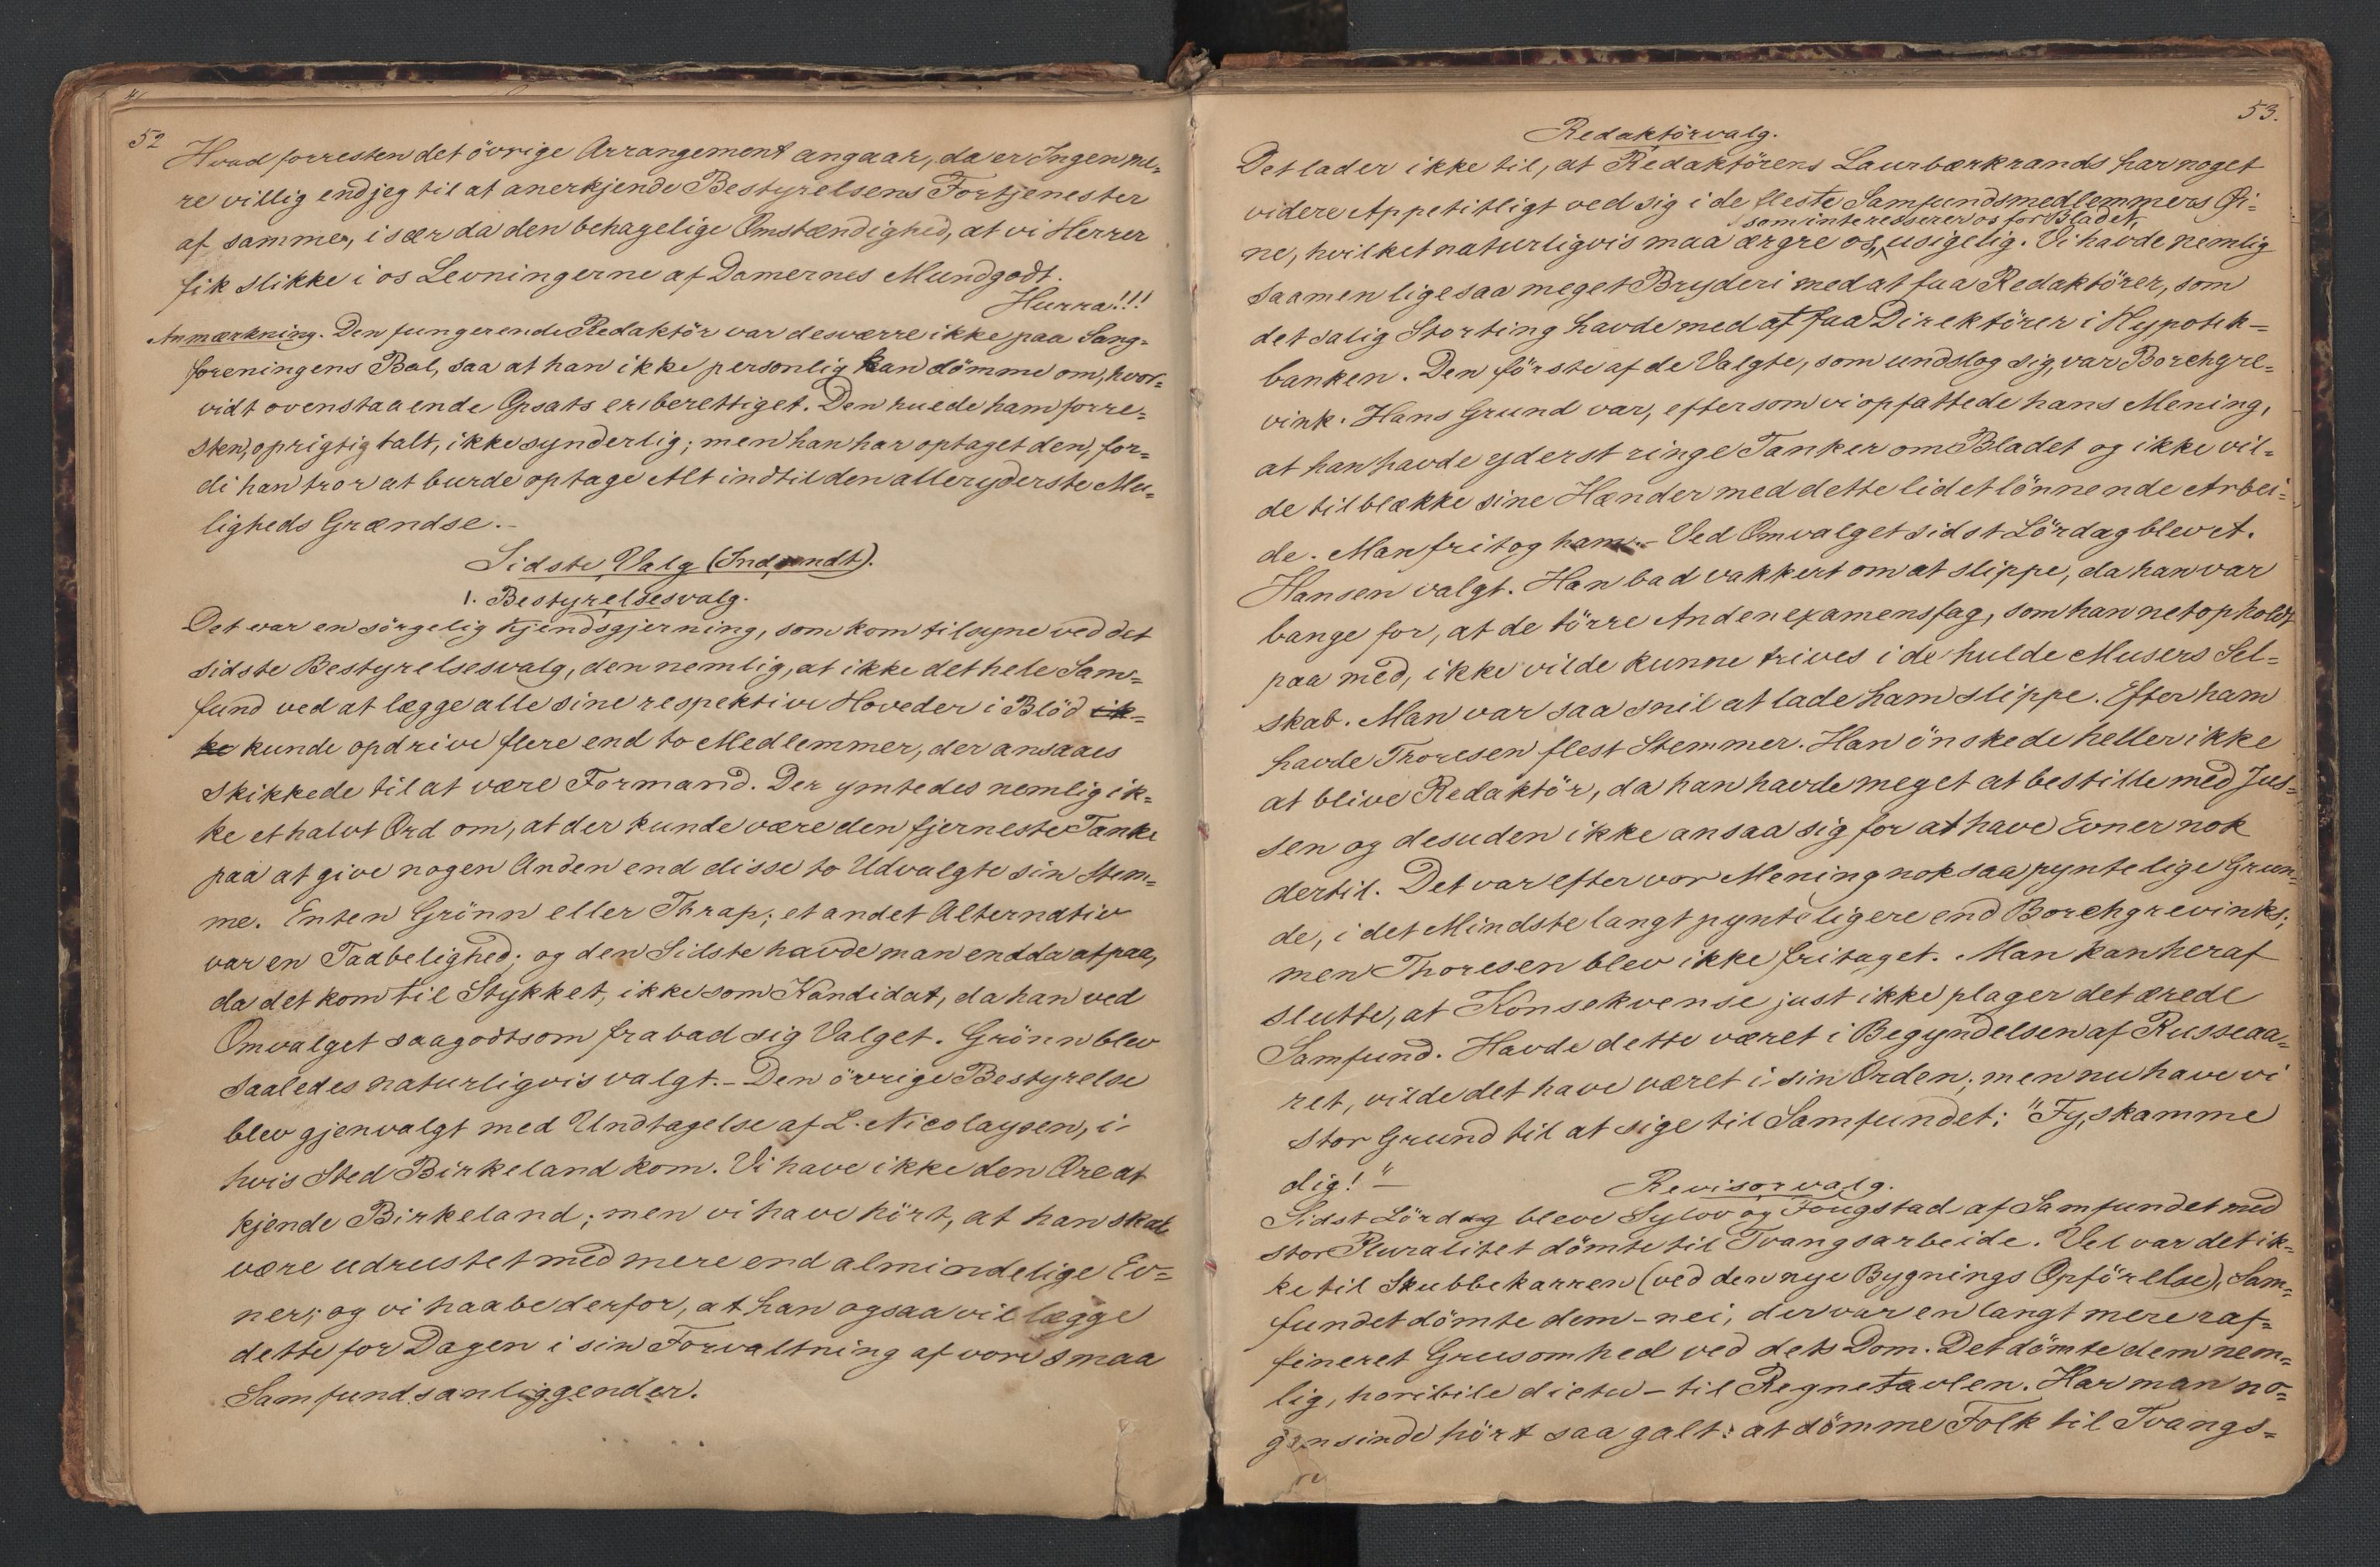 52
Hvad forresten det övrige Arrangement angaar, da er Ingen me-
re villig end jeg til at anerkjende Bestyrelsens Fortjenester
af samme, især da den behagelige Omstændighed, at vi Herrer
fik slikke i os Levningerne af Damernes Mundgodt.
Hurra!!!
Anmærkning. Den fungerende Redaktör var desværre ikke paa Sang-
foreningens Bal, saa at han ikke personlig kan dömme om, hvor-
vidt ovenstaaende Opsats er berettiget. Den huede ham forre-
sten, oprigtig talt, ikke synderlig; men han har optaget den, for-
di han tror at burde optage Alt indtil den alleryderste Mu-
ligheds Grændse.-
Sidste Valg (Indsendt).
1. Bestyrelsesvalg.
Det var en sörgelig Kjendsgjerning, som kom tilsyne ved det
sidste Bestyrelsesvalg, den nemlig, at ikke det hele Sam-
fund ved at lægge alle sine respektive Hoveder i Blöd ik-
ke kunde opdrive flere end to Medlemmer, der ansaaes
skikkede til at være Formand. Der ymtedes nemlig ik-
ke et halvt Ord om, at der kunde være den fjerneste Tanke
paa at give nogen Anden end disse to Udvalgte sin Stem-
me. Enten Grönn eller Thrap; et andet Alternativ
var en Taabelighed; og den Sidste havde man endda at paa,
da det kom til Stykket, ikke som Kandidat, da han ved
Omvalget saagodtsom frabad sig Valget. Grönn blev
saaledes naturligvis valgt.- Den övrige Bestyrelse
blev gjenvalgt med Undtagelse af L. Nicolaysen, i
hvis Sted Birkeland kom. Vi have ikke den Ære at
kjende Birkeland; men vi have hört, at han skal
være udrustet med mere end almindelige Ev-
ner; og vi haabe derfor, at han ogsaa vil lægge
dette for Dagen i sin Forvaltning af vore smaa
Samfundsanliggender.
53.
Redaktörvalg.
Det lader ikke til, at Redaktörens Laurbærkrands har noget
videre Appetitligt ved sig i de fleste Samfundsmedlemmers Öi-
som interedserer os for Bladet,
ne, hvilket naturligvis maa ærgre os, usigelig. Vi havde nemlig
saamen ligesaa meget Bryderi med at faa Redaktörer, som
det salig Storting havde med at faa Direktörer i Hypothek-
banken. Den förste af de Valgte, som undslog sig, var Borchgre-
vink. Hans Grund var, eftersom vi opfattede hans Mening,
at han havde yderst ringe Tanker om Bladet og ikke vil-
de tilblække sine Hænder med dette lidet lönnende Arbei-
de. Man fritog ham.- Ved Omvalget sidst Lördag blev A.
Hansen valgt. Han bad vakkert om at slippe, da han var
bange for, at de törre Andenexamensfag, som han netop holdt
paa med, ikke vilde kunne trives i de hulde Musers Sel-
skab. Man var saa snil at lade ham slippe. Efter ham
havde Thoresen flest Stemmer. Han önskede heller ikke
at blive Redaktör, da han havde meget at bestille med Jus-
sen og desuden ikke ansaa sig for at have Evner nok
dertil. Det var efter vor Mening nok saa pyntelige Grun-
de, i det Mindste langt pynteligere end Borchgrevinks;
men Thoresen blev ikke fritaget. Man kan heraf
slutte, at Konsekvense just ikke plager det ærede
Samfund. Havde dette været i Begyndelsen af Russeaa-
ret, vilde det have været i sin Orden; men nu have vi
stor Grund til at sige til Samfundet: "Fy, skamme
dig!" -
Revisorvalg.
Sidst Lördag bleve Sylow og Fougstad af Samfundet med
stor Pluralitet dömte til Tvangsarbeide. Vel var det ik-
ke til Skubbekarren (ved den nye Bygnings Opförelse), Sam-
fundet dömte dem - nei, der var en langt mere raf-
fineret Grusomhed ved dets Dom. Det dömte dem nem-
lig, horibile dictu - til Regnetavlen. Har man no-
gensinde hört saa galt: at dömme Folk til Tvangs-